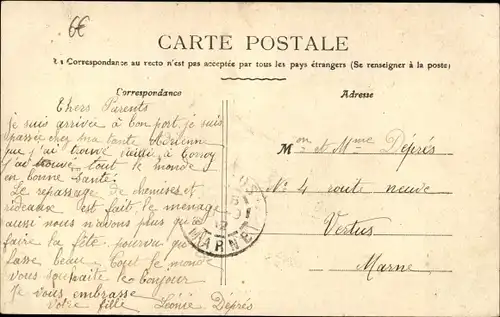 6€
CARTE POSTALE
La Correspondance au recto n'est pas acceptée par tous les pays étrangers (Se renseigner à la poste)
Correspondance
Adresse
Chers Parents
je suis arrivée à bon port, je suis
passée chez ma tante Adrienne
que j'ai trouvé à
j'ai trouvé tout le monde
en bonne santé
Le repassage de chemises et
rideaux est fait le menage
aussi nous n'avons plus qu'à
faire la fête, pourvu qu'il
fasse beau. Tout le monde
vous souhaite le bonjour
Je vous embrasse
Votre fille Léonie Déprés
Mon et Mme Déprés
No 4 route neuve
Vertus
Marne
MARNE